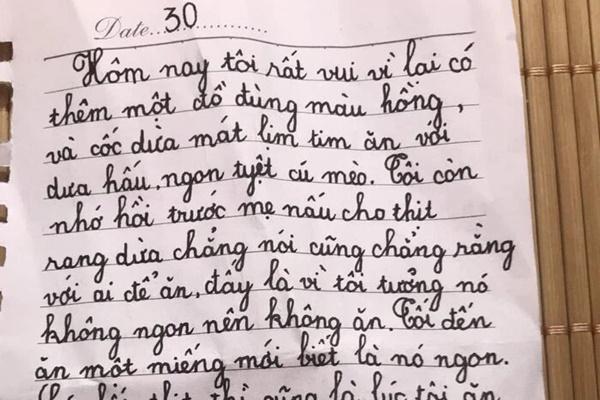 Date 30
Hôm nay tôi rất vui vì lại có
thêm một đồ dùng màu hồng,
và cốc dừa mát lịm tim ăn với
dưa hấu, ngon tuyệt cú mèo. Tôi còn
nhớ hồi trước mẹ nấu cho thịt
rang dừa chẳng nói cũng chẳng rằng
với ai để ăn, đấy là vì tôi tưởng nó
không ngon nên không ăn. Tối đến
ăn một miếng mới biết là nó ngon.
thịt thì cũng là lúc tôi ăn